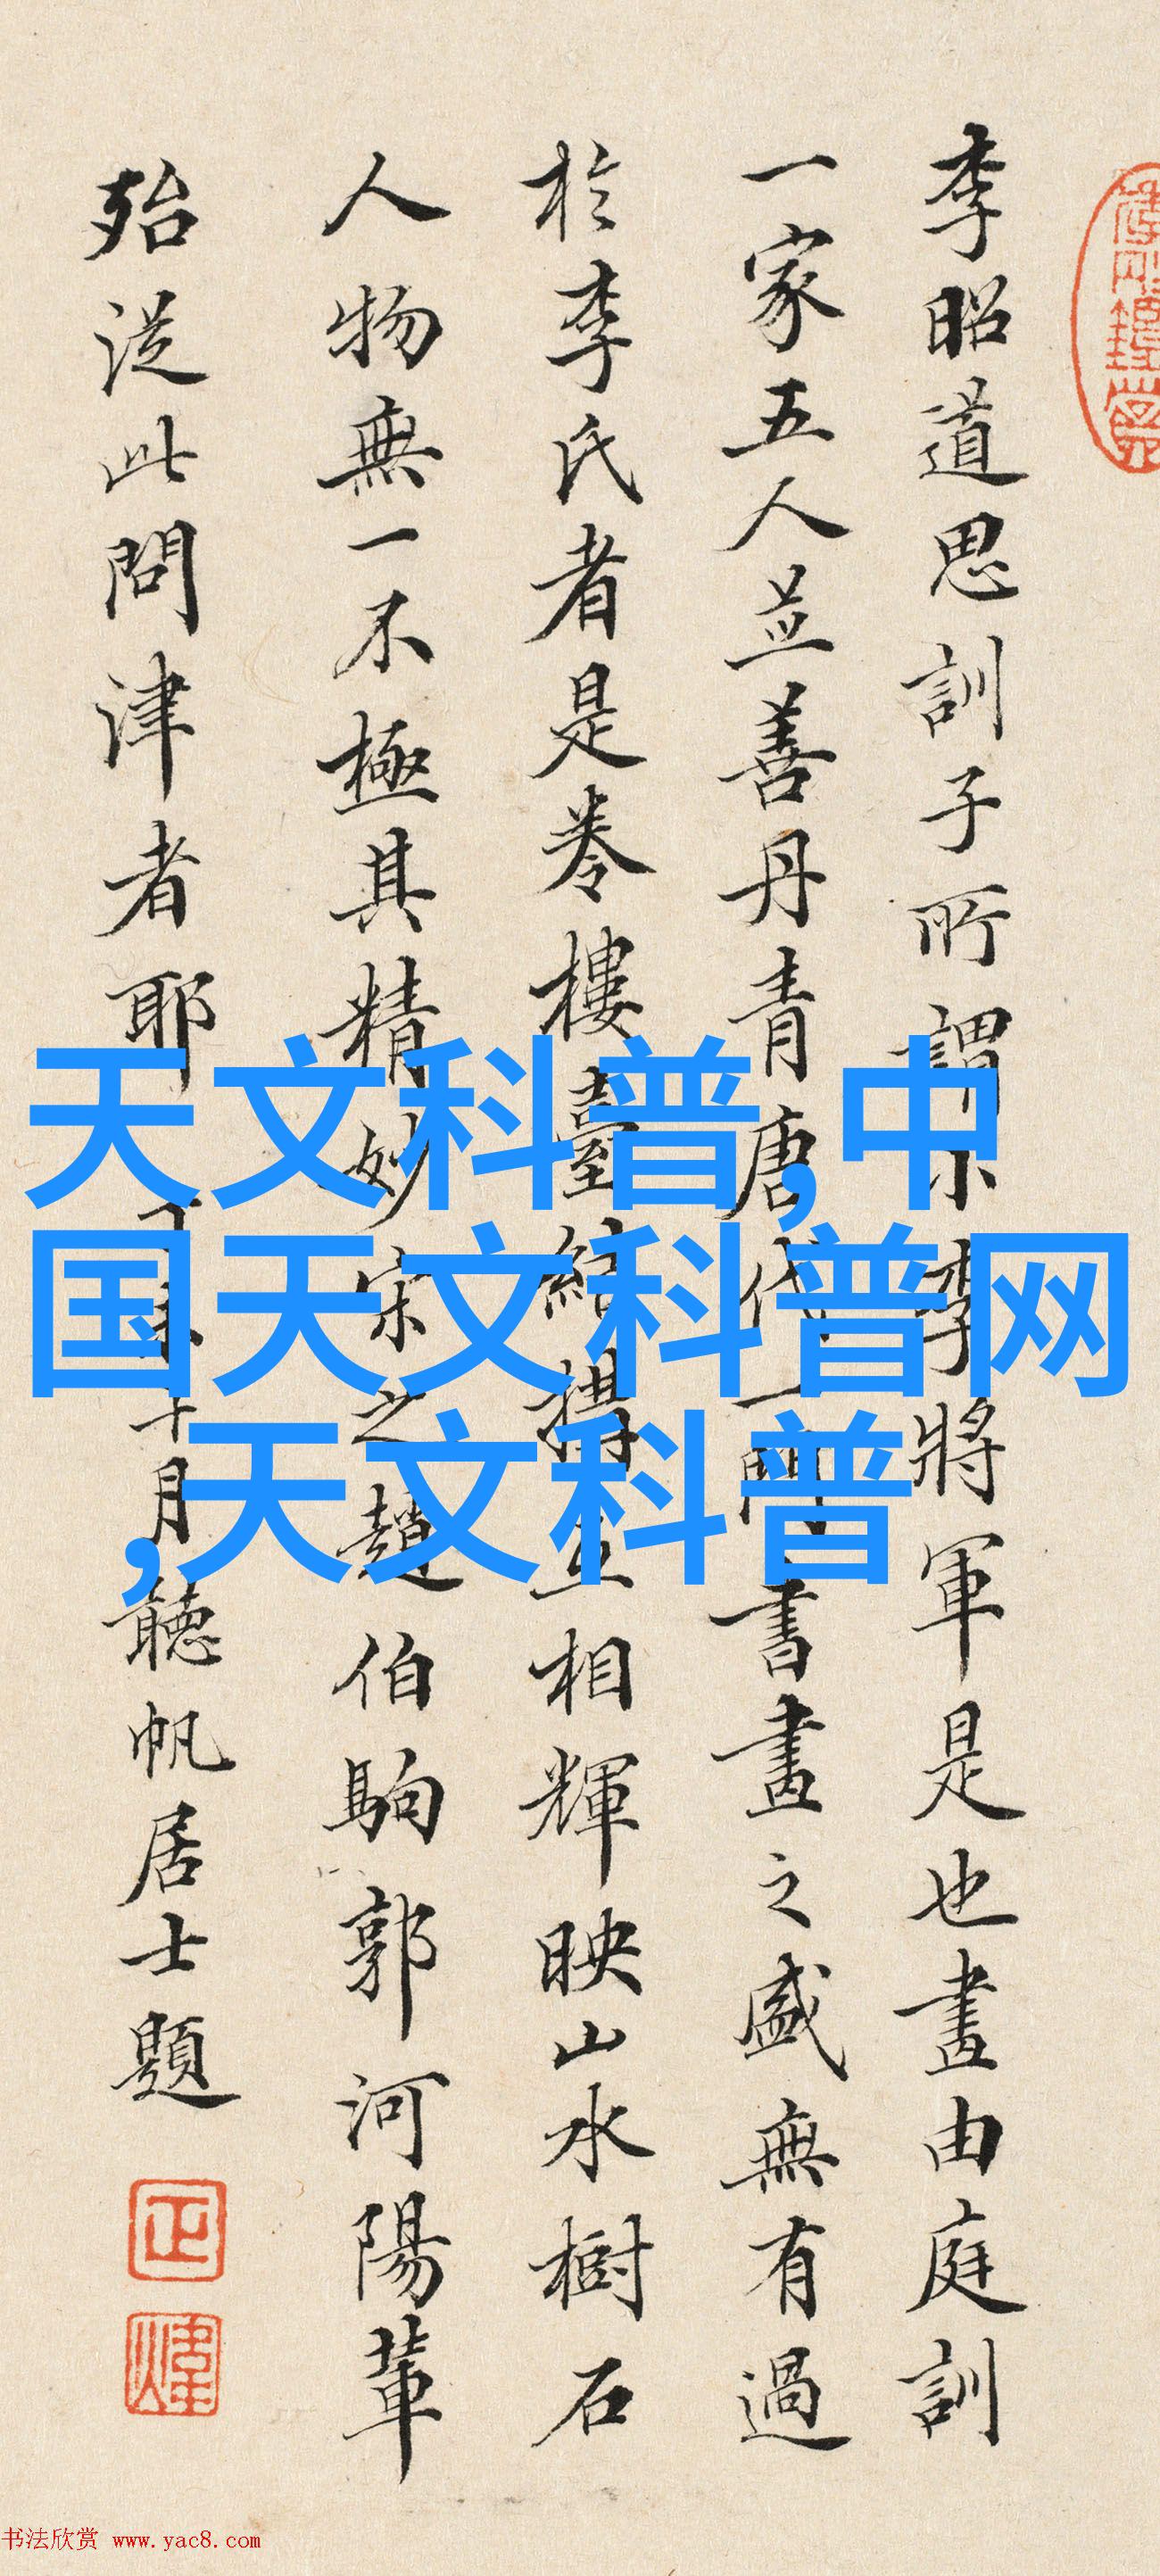 李昭道思訓子所謂小李將軍是也畫由庭訓
一家五人並善丹青唐代一門書畫之盛無有過
於李氏者是卷樓臺結構互相輝映山水樹石
人物無一不極其精妙宋之趙伯駒郭河陽輩
殆從此問津者耶
十月聽帆居士題
天文科普,中
国天文科普网
,天文科普
书法欣赏 www.yac8.com